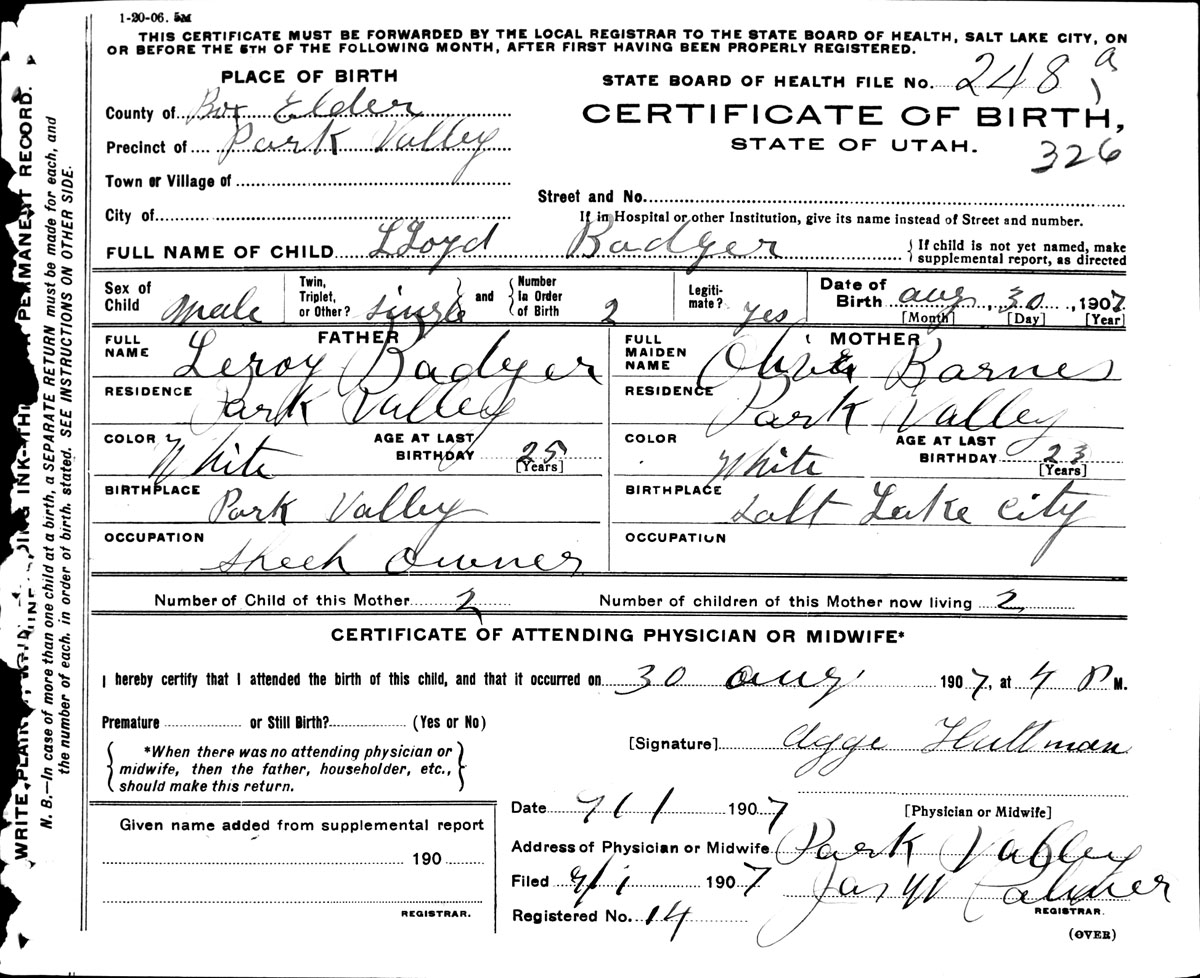 1-20-06. 5M
THIS CERTIFICATE MUST BE FORWARDED BY THE LOCAL REGISTRAR TO THE STATE BOARD OF HEALTH, SALT LAKE CITY, ON
OR BEFORE THE 5TH OF THE FOLLOWING MONTH, AFTER FIRST HAVING BEEN PROPERLY REGISTERED.
PLACE OF BIRTH
STATE BOARD OF HEALTH FILE No. 248 a
County of Box Elder
CERTIFICATE OF BIRTH,
Precinct of Park Valley
STATE OF UTAH.
326
Town or Village of
Street and No.
City of
If in Hospital or other Institution, give its name instead of Street and number.
FULL NAME OF CHILD LLoyd Badger
If child is not yet named, make
supplemental report, as directed
Sex of Child male
Twin, Triplet, or Other? single and Number In Order of Birth 2
Legiti-mate? yes
Date of Birth aug, 30, 1907
[Month] [Day] [Year]
FATHER
FULL NAME Leroy Badger
RESIDENCE Park Valley
COLOR White AGE AT LAST BIRTHDAY 25
[Years]
BIRTHPLACE Park Valley
OCCUPATION Sheep Owner
MOTHER
FULL MAIDEN NAME Olive Barnes
RESIDENCE Park Valley
COLOR White AGE AT LAST BIRTHDAY 23
[Years]
BIRTHPLACE Salt Lake City
OCCUPATION
Number of Child of this Mother 2 Number of children of this Mother now living 2
CERTIFICATE OF ATTENDING PHYSICIAN OR MIDWIFE*
I hereby certify that I attended the birth of this child, and that it occurred on 30 aug 1907, at 4 P M.
Premature or Still Birth? (Yes or No)
*When there was no attending physician or
midwife, then the father, householder, etc.,
should make this return.
[Signature] Agge Hultman
[Physician or Midwife]
Given name added from supplemental report
190
REGISTRAR.
Date 9/1 1907
Address of Physician or Midwife Park Valley
Filed 9/1 1907
REGISTRAR.
Registered No. 14
(OVER)
PERMANENT RECORD.
N. B.—In case of more than one child at a birth, a SEPARATE RETURN must be made for each, and
the number of each, in order of birth, stated. SEE INSTRUCTIONS ON OTHER SIDE.